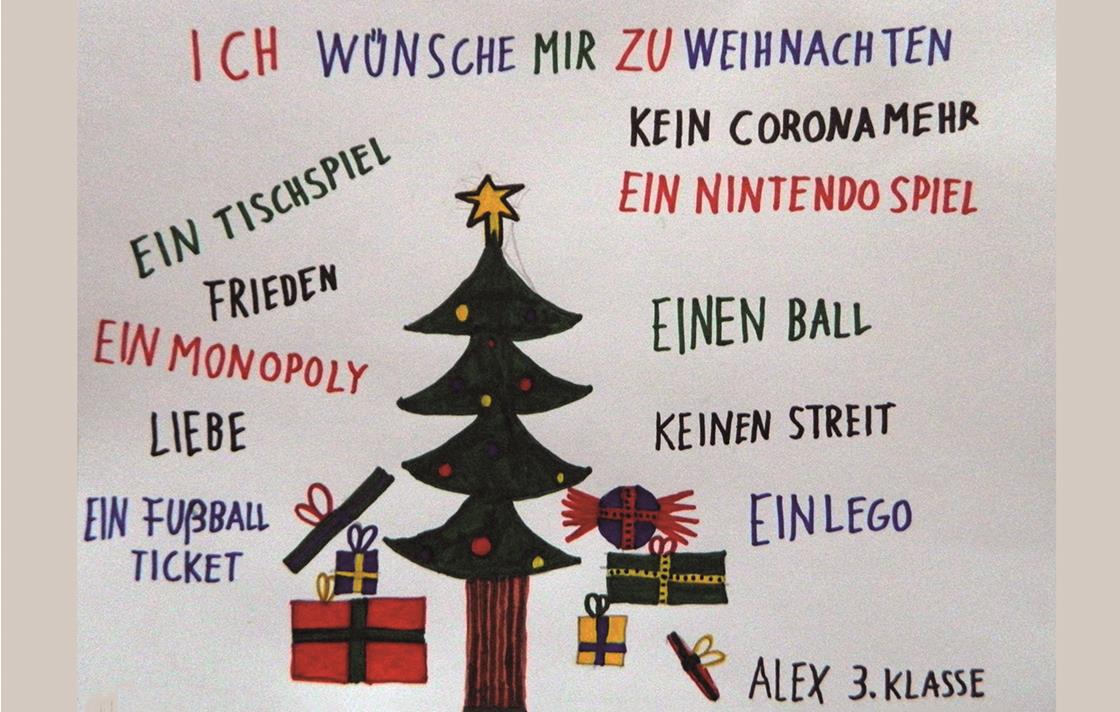 ICH WÜNSCHE MIR ZU WEIHNACHTEN
KEIN CORONA MEHR
EIN TISCHSPIEL
EIN NINTENDO SPIEL
FRIEDEN
EINEN BALL
EIN MONOPOLY
LIEBE
KEINEN STREIT
EIN FUßBALL
TICKET
EIN LEGO
ALEX 3. KLASSE